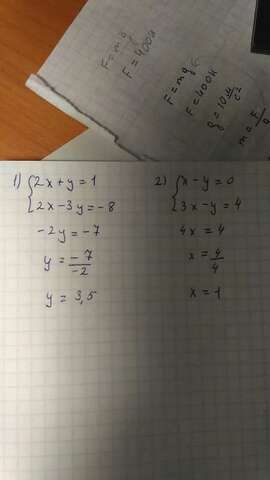 F = mg
F = 400н
F = mg
F = 400н
g = 10 м/с²
m = F/g
1) {2x + y = 1
{2x - 3y = -8
-2y = -7
y = -7/-2
y = 3,5
2) {x - y = 0
{3x - y = 4
4x = 4
x = 4/4
x = 1